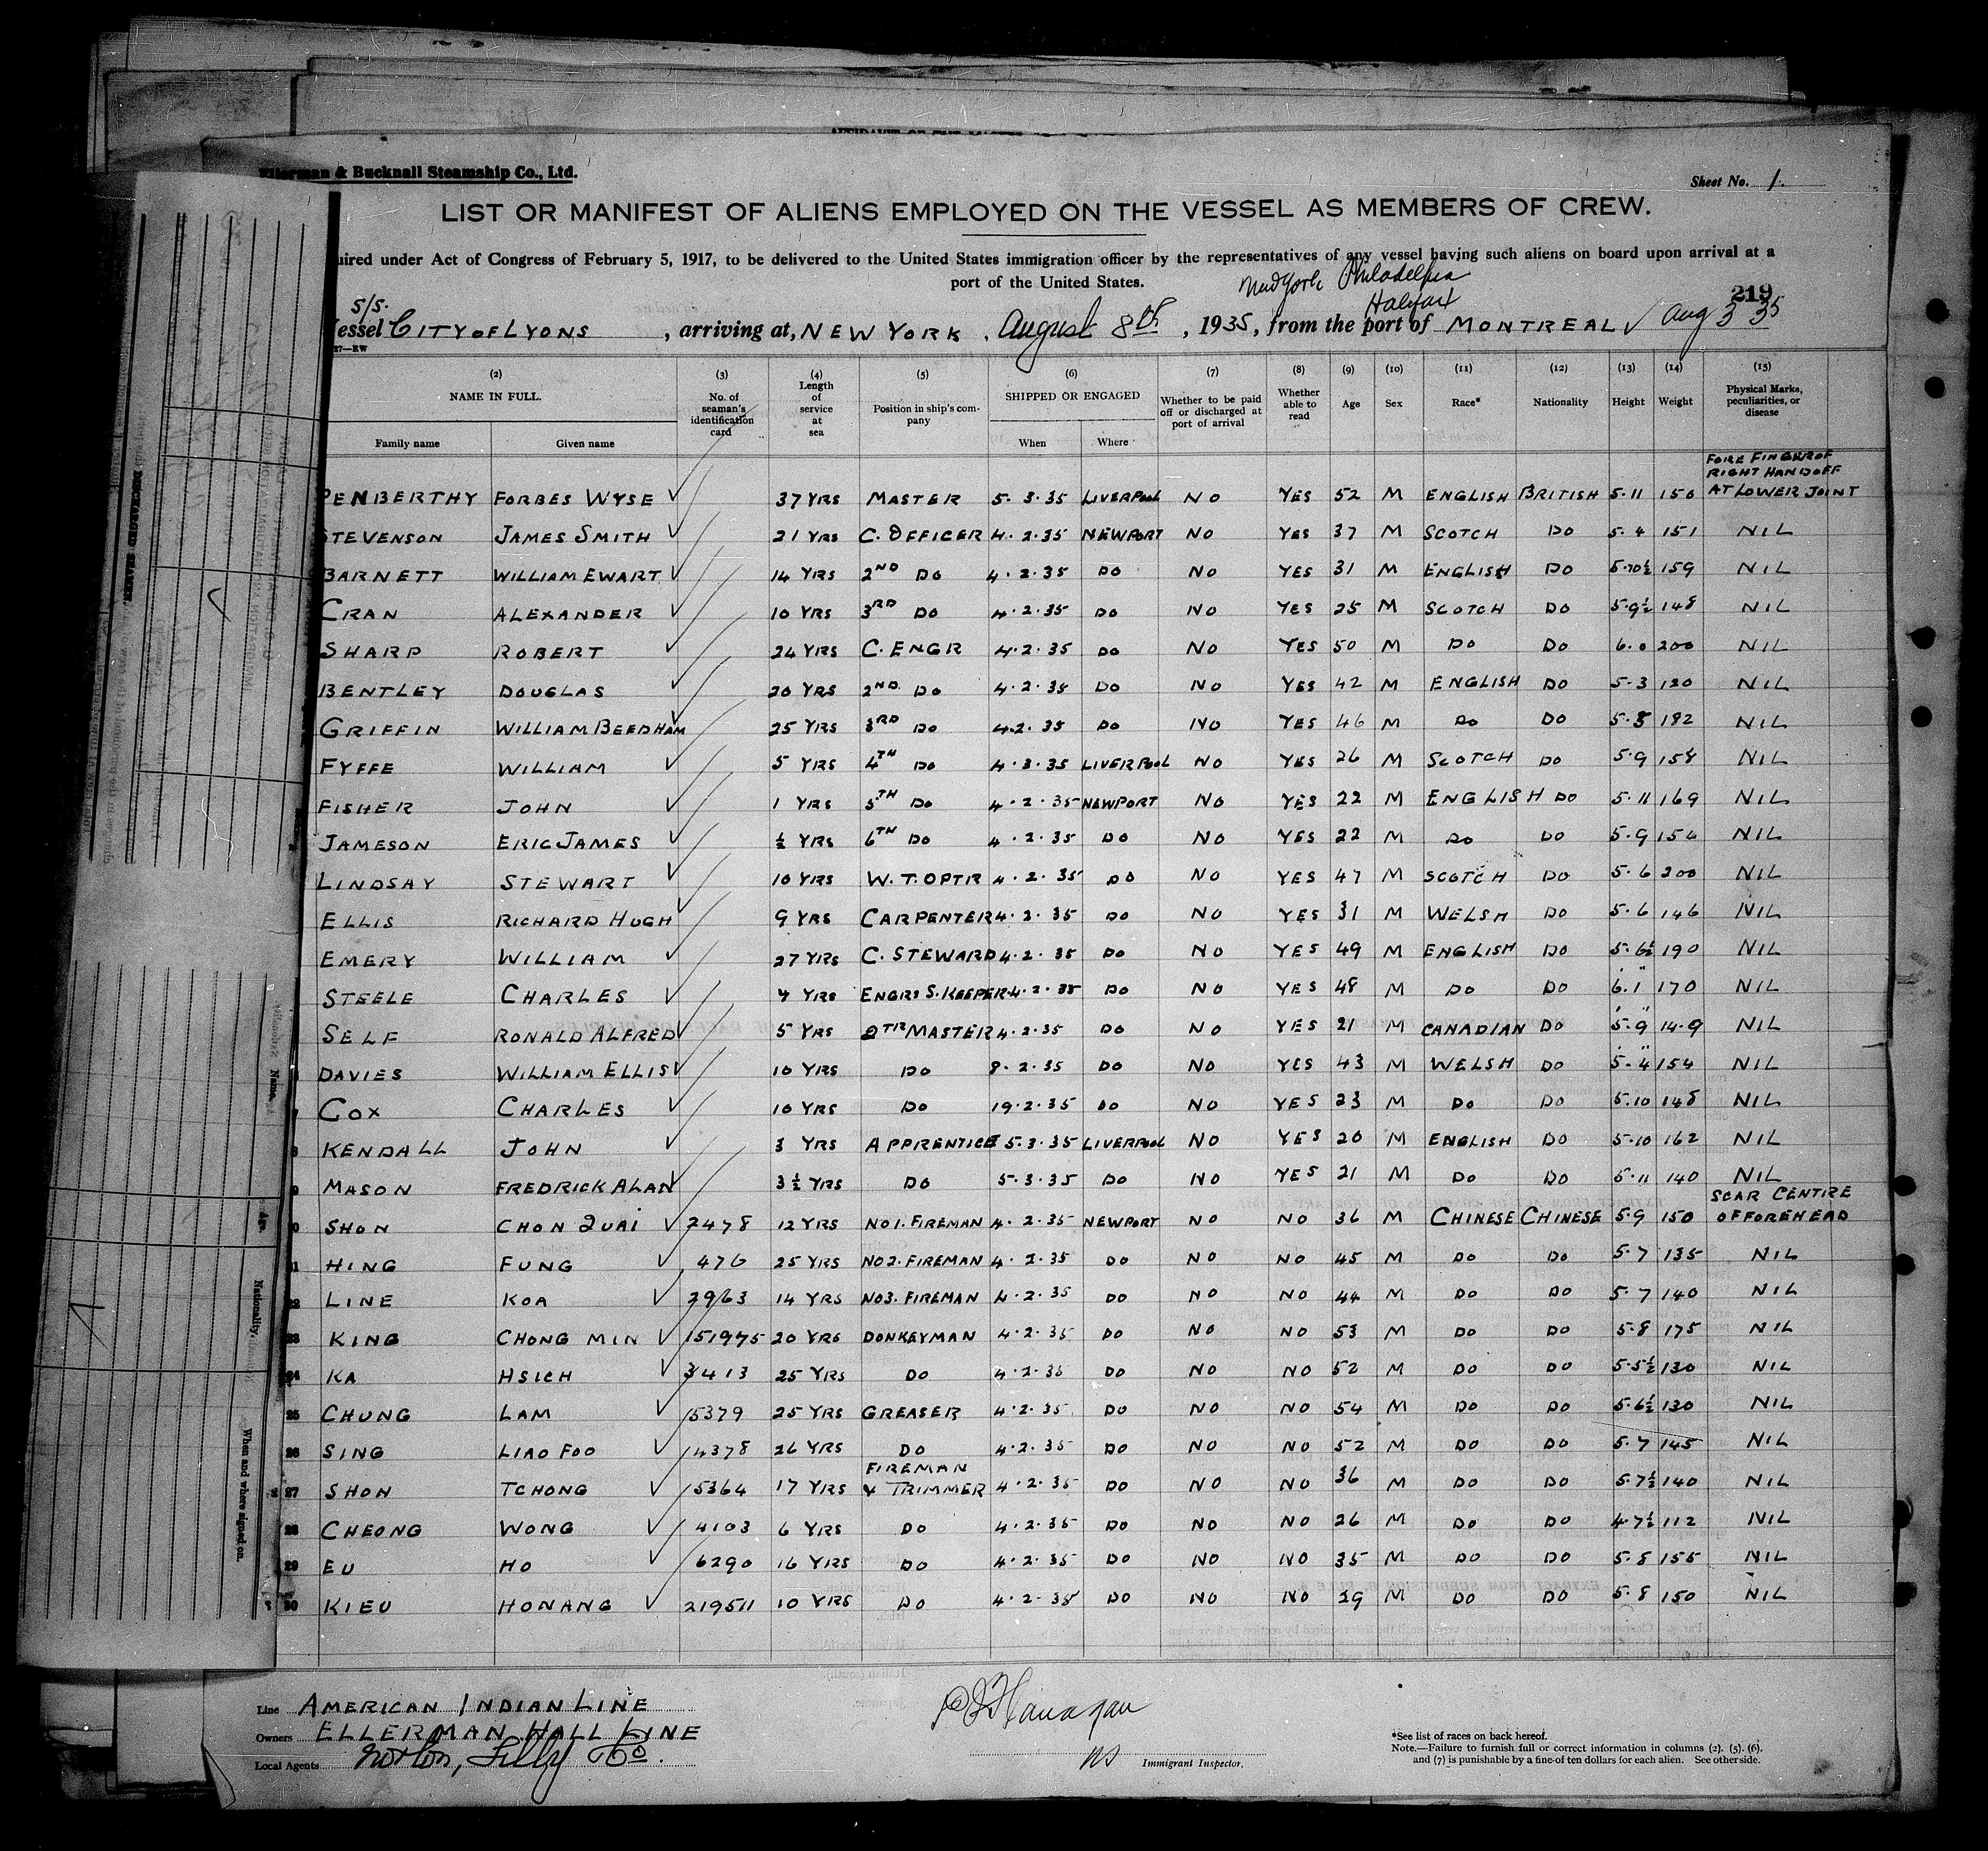 & Bucknall Steamship Co., Ltd.
Sheet No. 1.
LIST OR MANIFEST OF ALIENS EMPLOYED ON THE VESSEL AS MEMBERS OF CREW.
uired under Act of Congress of February 5, 1917, to be delivered to the United States immigration officer by the representatives of any vessel having such aliens on board upon arrival at a
port of the United States.
New York Philadelpia
Halifax
219
S/S.
essel CITY OF LYONS, arriving at, NEW YORK, August 8th, 1935, from the port of MONTREAL ✓ Aug 3 35
27—RW
(2) (3) (4) (5) (6) (7) (8) (9) (10) (11) (12) (13) (14) (15)
NAME IN FULL. No. of seaman's identification card Length of service at sea Position in ship's company SHIPPED OR ENGAGED Whether to be paid off or discharged at port of arrival Whether able to read Age Sex Race* Nationality Height Weight Physical Marks, peculiarities, or disease
Family name Given name When Where
PENBERTHY FORBES WYSE ✓ 37 YRS MASTER 5.3.35 LIVERPOOL NO YES 52 M ENGLISH BRITISH 5.11 150 FORE FINGER OF RIGHT HAND OFF AT LOWER JOINT
STEVENSON JAMES SMITH ✓ 21 YRS C. OFFICER 4.2.35 NEWPORT NO YES 37 M SCOTCH DO 5.4 151 NIL
BARNETT WILLIAM EWART ✓ 14 YRS 2ND DO 4.2.35 DO NO YES 31 M ENGLISH DO 5.10½ 159 NIL
CRAN ALEXANDER ✓ 10 YRS 3RD DO 4.2.35 DO NO YES 25 M SCOTCH DO 5.9½ 148 NIL
SHARP ROBERT ✓ 24 YRS C. ENGR 4.2.35 DO NO YES 50 M DO DO 6.0 200 NIL
BENTLEY DOUGLAS ✓ 20 YRS 2ND DO 4.2.35 DO NO YES 42 M ENGLISH DO 5.3 120 NIL
GRIFFIN WILLIAM BEEDHAM ✓ 25 YRS 3RD DO 4.2.35 DO NO YES 46 M DO DO 5.8 182 NIL
FYFFE WILLIAM ✓ 5 YRS 4TH DO 4.3.35 LIVERPOOL NO YES 26 M SCOTCH DO 5.9 158 NIL
FISHER JOHN ✓ 1 YRS 5TH DO 4.2.35 NEWPORT NO YES 22 M ENGLISH DO 5.11 169 NIL
JAMESON ERIC JAMES ✓ ½ YRS 6TH DO 4.2.35 DO NO YES 22 M DO DO 5.9 154 NIL
LINDSAY STEWART ✓ 10 YRS W.T. OPTR 4.2.35 DO NO YES 47 M SCOTCH DO 5.6 200 NIL
ELLIS RICHARD HUGH ✓ 9 YRS CARPENTER 4.2.35 DO NO YES 31 M WELSH DO 5.6 146 NIL
EMERY WILLIAM ✓ 27 YRS C. STEWARD 4.2.35 DO NO YES 49 M ENGLISH DO 5.6½ 190 NIL
STEELE CHARLES ✓ 4 YRS ENGRS S. KEEPER 4.2.35 DO NO YES 48 M DO DO 6.1 170 NIL
SELF RONALD ALFRED ✓ 5 YRS QTR MASTER 4.2.35 DO NO YES 21 M CANADIAN DO 5.9 14.9 NIL
DAVIES WILLIAM ELLIS ✓ 10 YRS DO 8.2.35 DO NO YES 43 M WELSH DO 5.4 154 NIL
COX CHARLES ✓ 10 YRS DO 19.2.35 DO NO YES 23 M DO DO 5.10 148 NIL
KENDALL JOHN ✓ 3 YRS APPRENTICE 5.3.35 LIVERPOOL NO YES 20 M ENGLISH DO 5.10 162 NIL
MASON FREDRICK ALAN ✓ 3½ YRS DO 5.3.35 DO NO YES 21 M DO DO 5.11 140 NIL
SHON CHON QUAI ✓ 2478 12 YRS NO1. FIREMAN 4.2.35 NEWPORT NO NO 36 M CHINESE CHINESE 5.9 150 SCAR CENTRE OF FOREHEAD
HING FUNG ✓ 476 25 YRS NO2. FIREMAN 4.2.35 DO NO NO 45 M DO DO 5.7 135 NIL
22 LINE KOA ✓ 2963 14 YRS NO3. FIREMAN 4.2.35 DO NO NO 44 M DO DO 5.7 140 NIL
23 KING CHONG MIN ✓ 151975 20 YRS DONKEYMAN 4.2.35 DO NO NO 53 M DO DO 5.8 175 NIL
24 KA HSICH ✓ 3413 25 YRS DO 4.2.35 DO NO NO 52 M DO DO 5.5½ 130 NIL
25 CHUNG LAM ✓ 15379 25 YRS GREASER 4.2.35 DO NO NO 54 M DO DO 5.6½ 130 NIL
26 SING LIAO FOO ✓ 14378 26 YRS DO 4.2.35 DO NO NO 52 M DO DO 5.7 145 NIL
27 SHON TCHONG ✓ 15364 17 YRS FIREMAN & TRIMMER 4.2.35 DO NO NO 36 M DO DO 5.7½ 140 NIL
28 CHEONG WONG ✓ 4103 6 YRS DO 4.2.35 DO NO NO 26 M DO DO 4.7½ 112 NIL
29 EU HO ✓ 6290 16 YRS DO 4.2.35 DO NO NO 35 M DO DO 5.8 155 NIL
30 KIEU HONANG ✓ 219511 10 YRS DO 4.2.35 DO NO NO 29 M DO DO 5.8 150 NIL
Line AMERICAN INDIAN LINE
Owners ELLERMAN HALL LINE
Local Agents Norton, Lilly & Co.
Flanagan
Immigrant Inspector.
*See list of races on back hereof.
Note.—Failure to furnish full or correct information in columns (2), (5), (6),
and (7) is punishable by a fine of ten dollars for each alien. See other side.
Name.
Age.
Nationality.
When and where signed on.